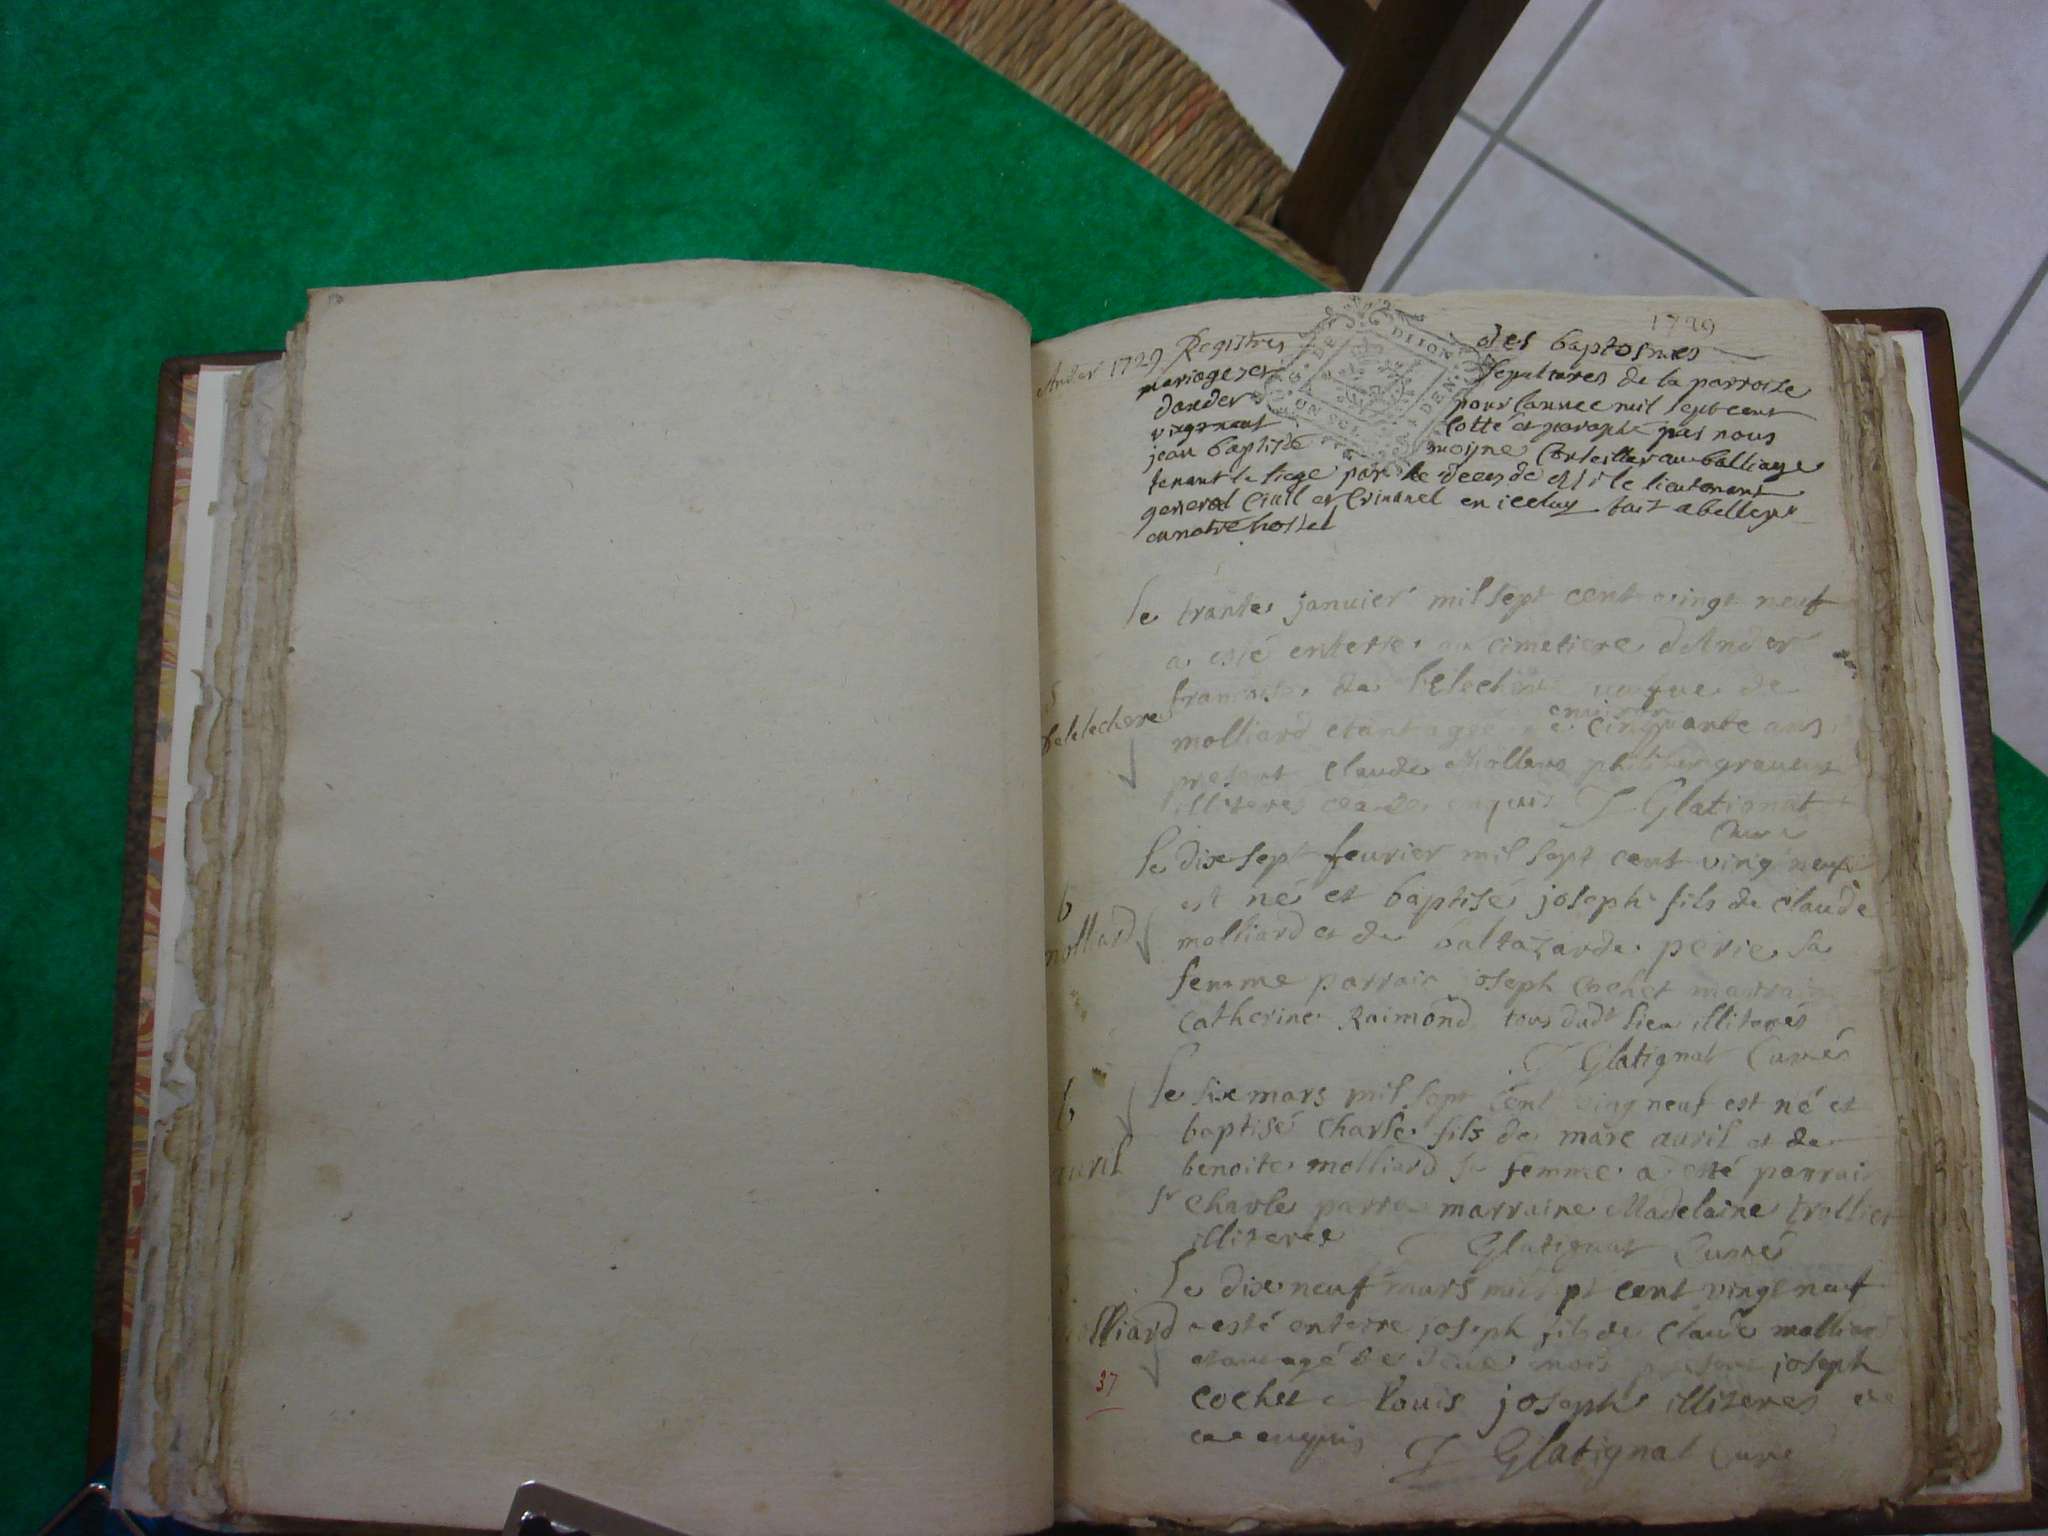 1729
Ander 1729 Registres des baptosmes
mariages et sepultures de la parroise
dander pour lannee mil sept cent
vingt neuf cotté et paraphé par nous
jean baptiste moyne Conseiller au balliage
tenant le siege par le deces de le lieutenant
general Civil et Criminel en iceluy fait a belley
en notre hostel
DIJON
le trante janvier mil sept cent vingt neuf
a esté enterre au cimetiere dAnder
de vaque de
molliard etant agee environ cinquante ans
present Claude
illiteres enquis J Glatignat
Curé
le dix sept feurier mil sept cent ving neuf
est né et baptisé joseph fils de claude
molliard et de baltazarde perie sa
femme parrain joseph Cochet marraine
Catherine Raimond tous dudt lieu illiterés
J Glatignat Curé
b
mollard
le six mars mil sept cent ving neuf est né et
baptisé Charle fils de marc auril et de
benoite molliard sa femme a esté parrain
sr Charle marraine Madelaine trollier
illiteree J Glatignat Curé
b
auril
Le dix neuf mars mil sept cent vingt neuf
a esté enterre joseph fils de Claude molliard
etant agé de deux mois present joseph
cochet et louis joseph illiteres de
ce enquis
J Glatignat Curé
molliard
37